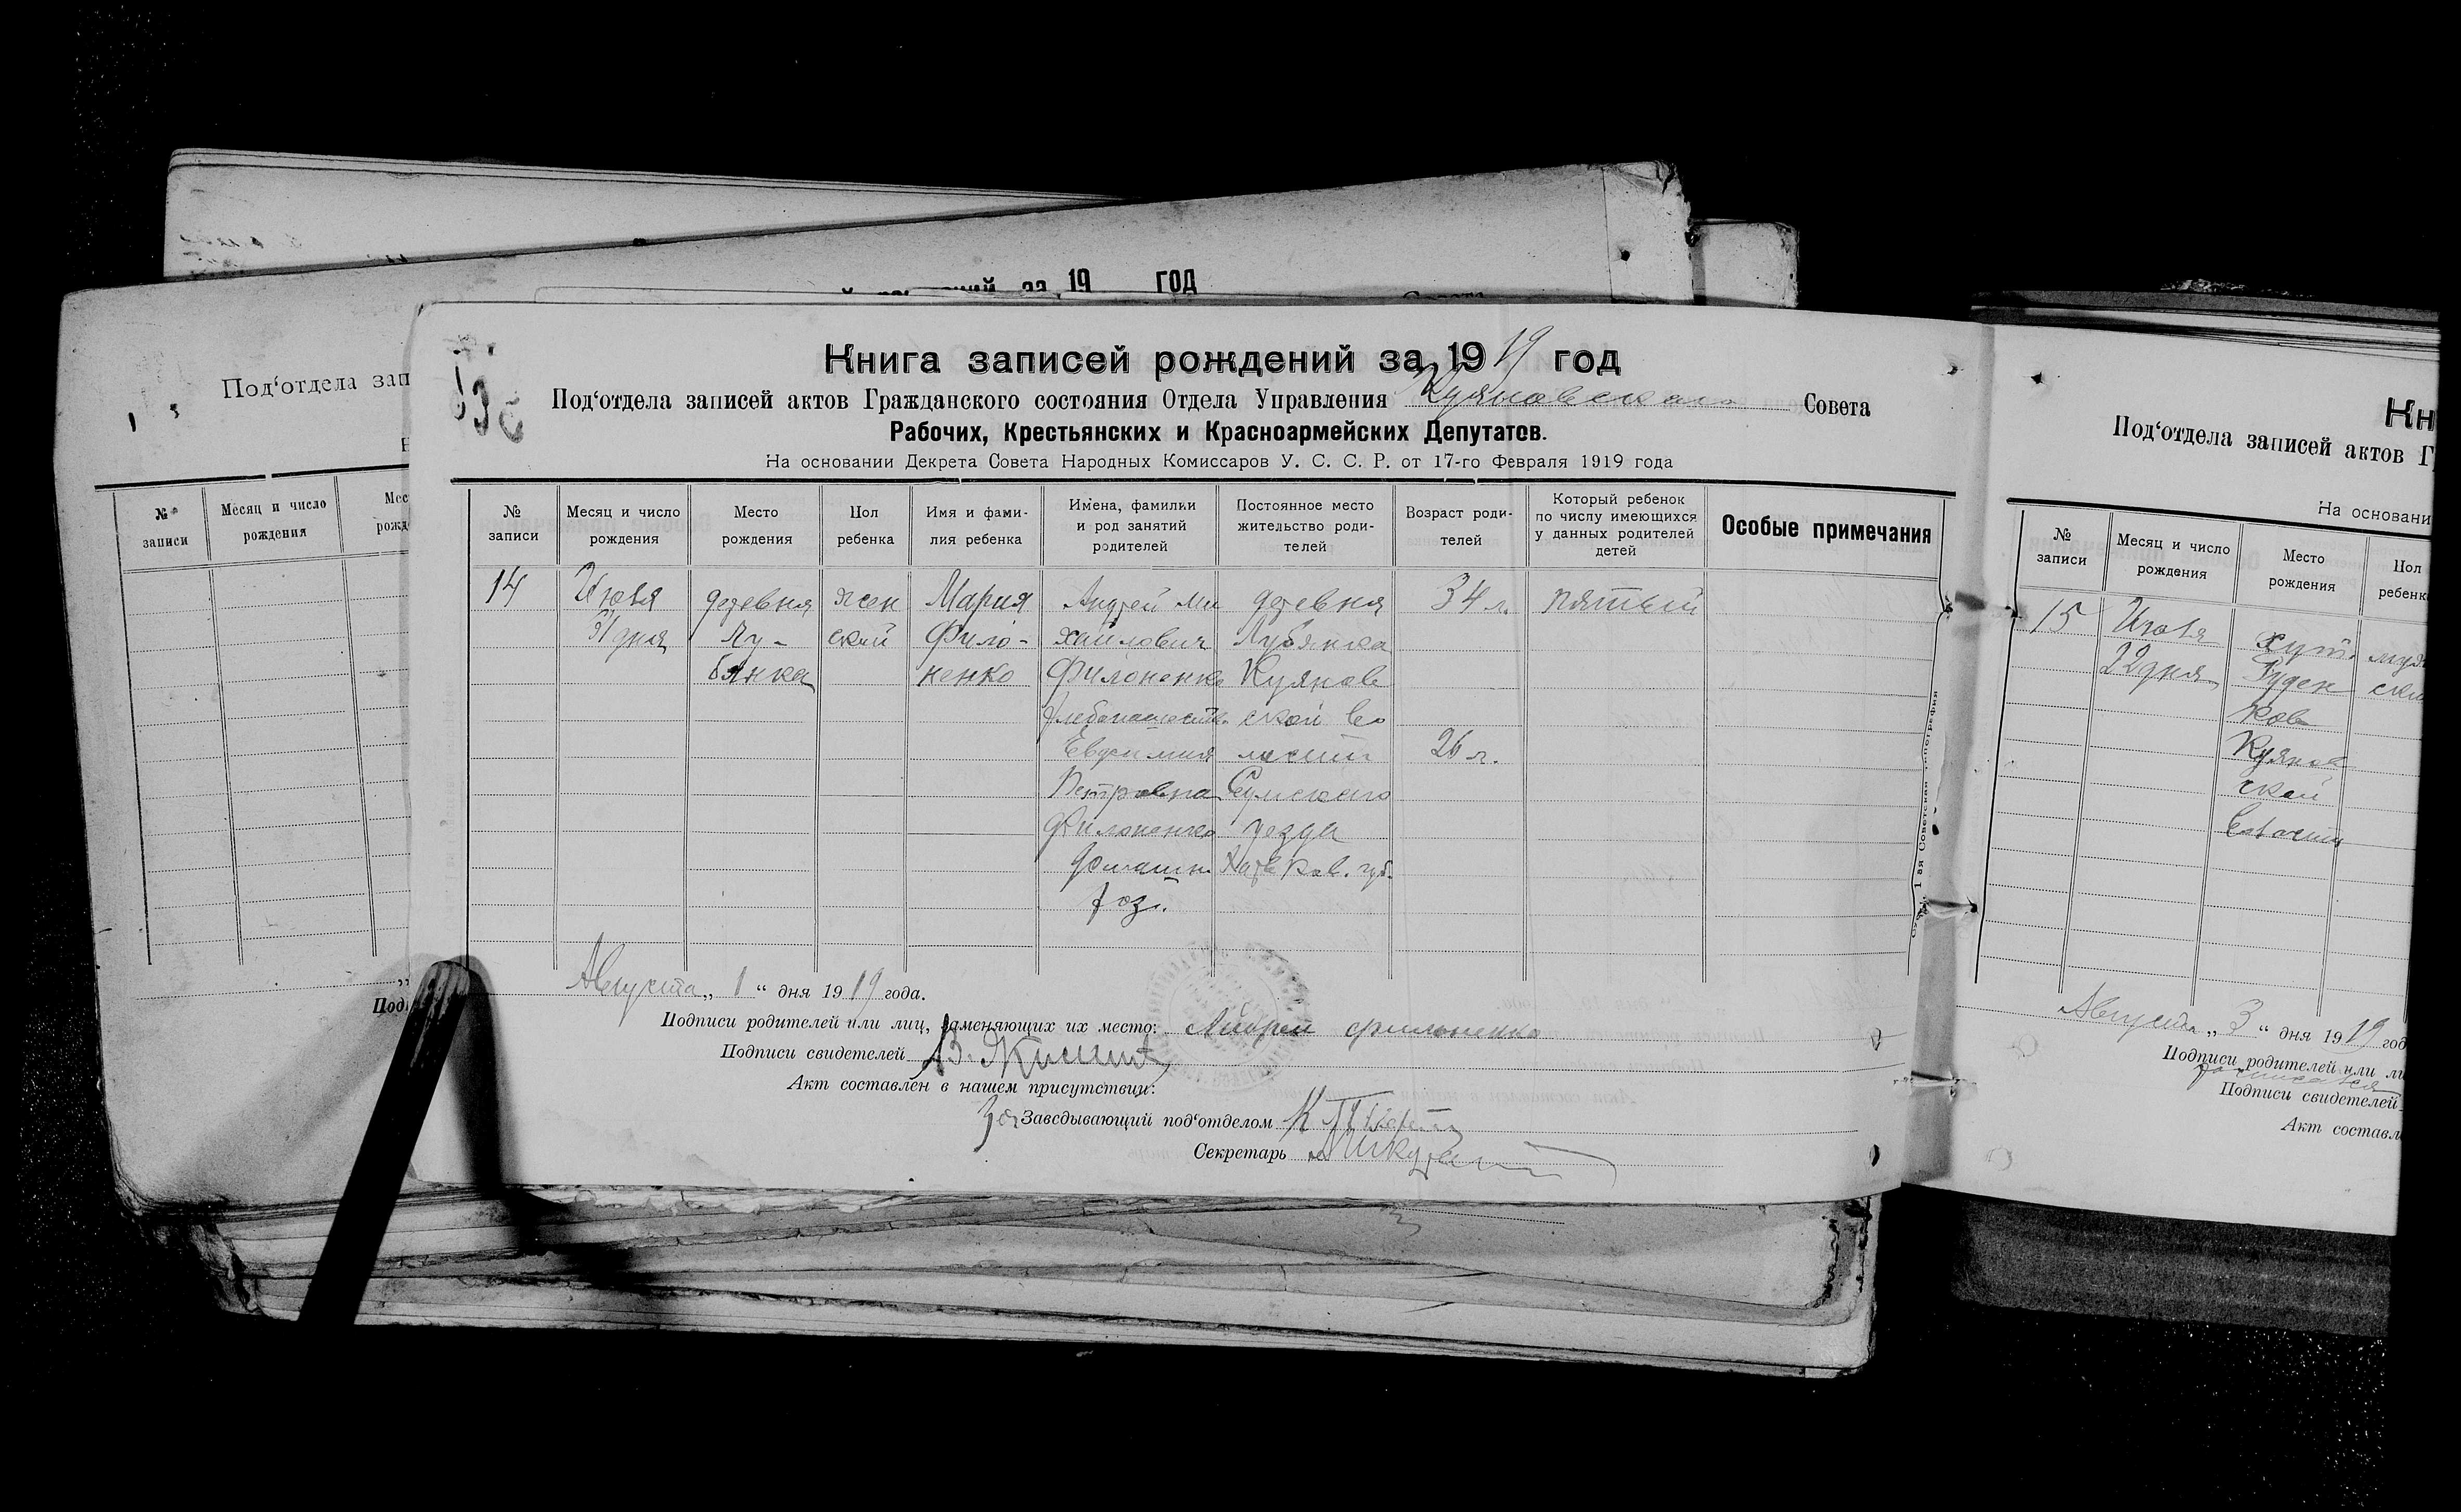 за 19 ГОД
Под‘отдела зап
№ записи
Месяц и число рождения
Книга записей рождений за 1919 год
Под‘отдела записей актов Гражданского состояния Отдела Управления Куяновского Совета
Рабочих, Крестьянских и Красноармейских Депутатов.
На основании Декрета Совета Народных Комиссаров У. С. С. Р. от 17-го Февраля 1919 года
№ записи
Месяц и число рождения
Место рождения
Пол ребенка
Имя и фамилия ребенка
Имена, фамилки и род занятий родителей
Постоянное место жительство родителей
Возраст родителей
Который ребенок по числу имеющихся у данных родителей детей
Особые примечания
14 Июля деревня жен Мария Андрей Ми деревня 34 л. пятый
31 дня Лу- ский Фило- хайлович Лубянка
бянка ненко Филоненко Куянов
хлебопашество ской во
Евдокимия лости 26 л.
Петровна Сумского
Филоненко уезда
домашн. Харьков. губ.
хоз.
Августа „ 1 “ дня 1919 года.
Подписи родителей или лиц, заменяющих их место: Андрей филоненко
Подписи свидетелей
Акт составлен в нашем присутствии:
Заведывающий под‘отделом
Секретарь
1 ая Советская типография
Кн
Под‘отдела записей актов Г
На основани
№ записи
Месяц и число рождения
Место рождения
Пол ребенк
15 Июля хут.
22 дня
ков
Куянов
ской
волости
Августа „ 3 “ дня 1919 год
Подписи родителей или ли
Подписи свидетелей
Акт составл